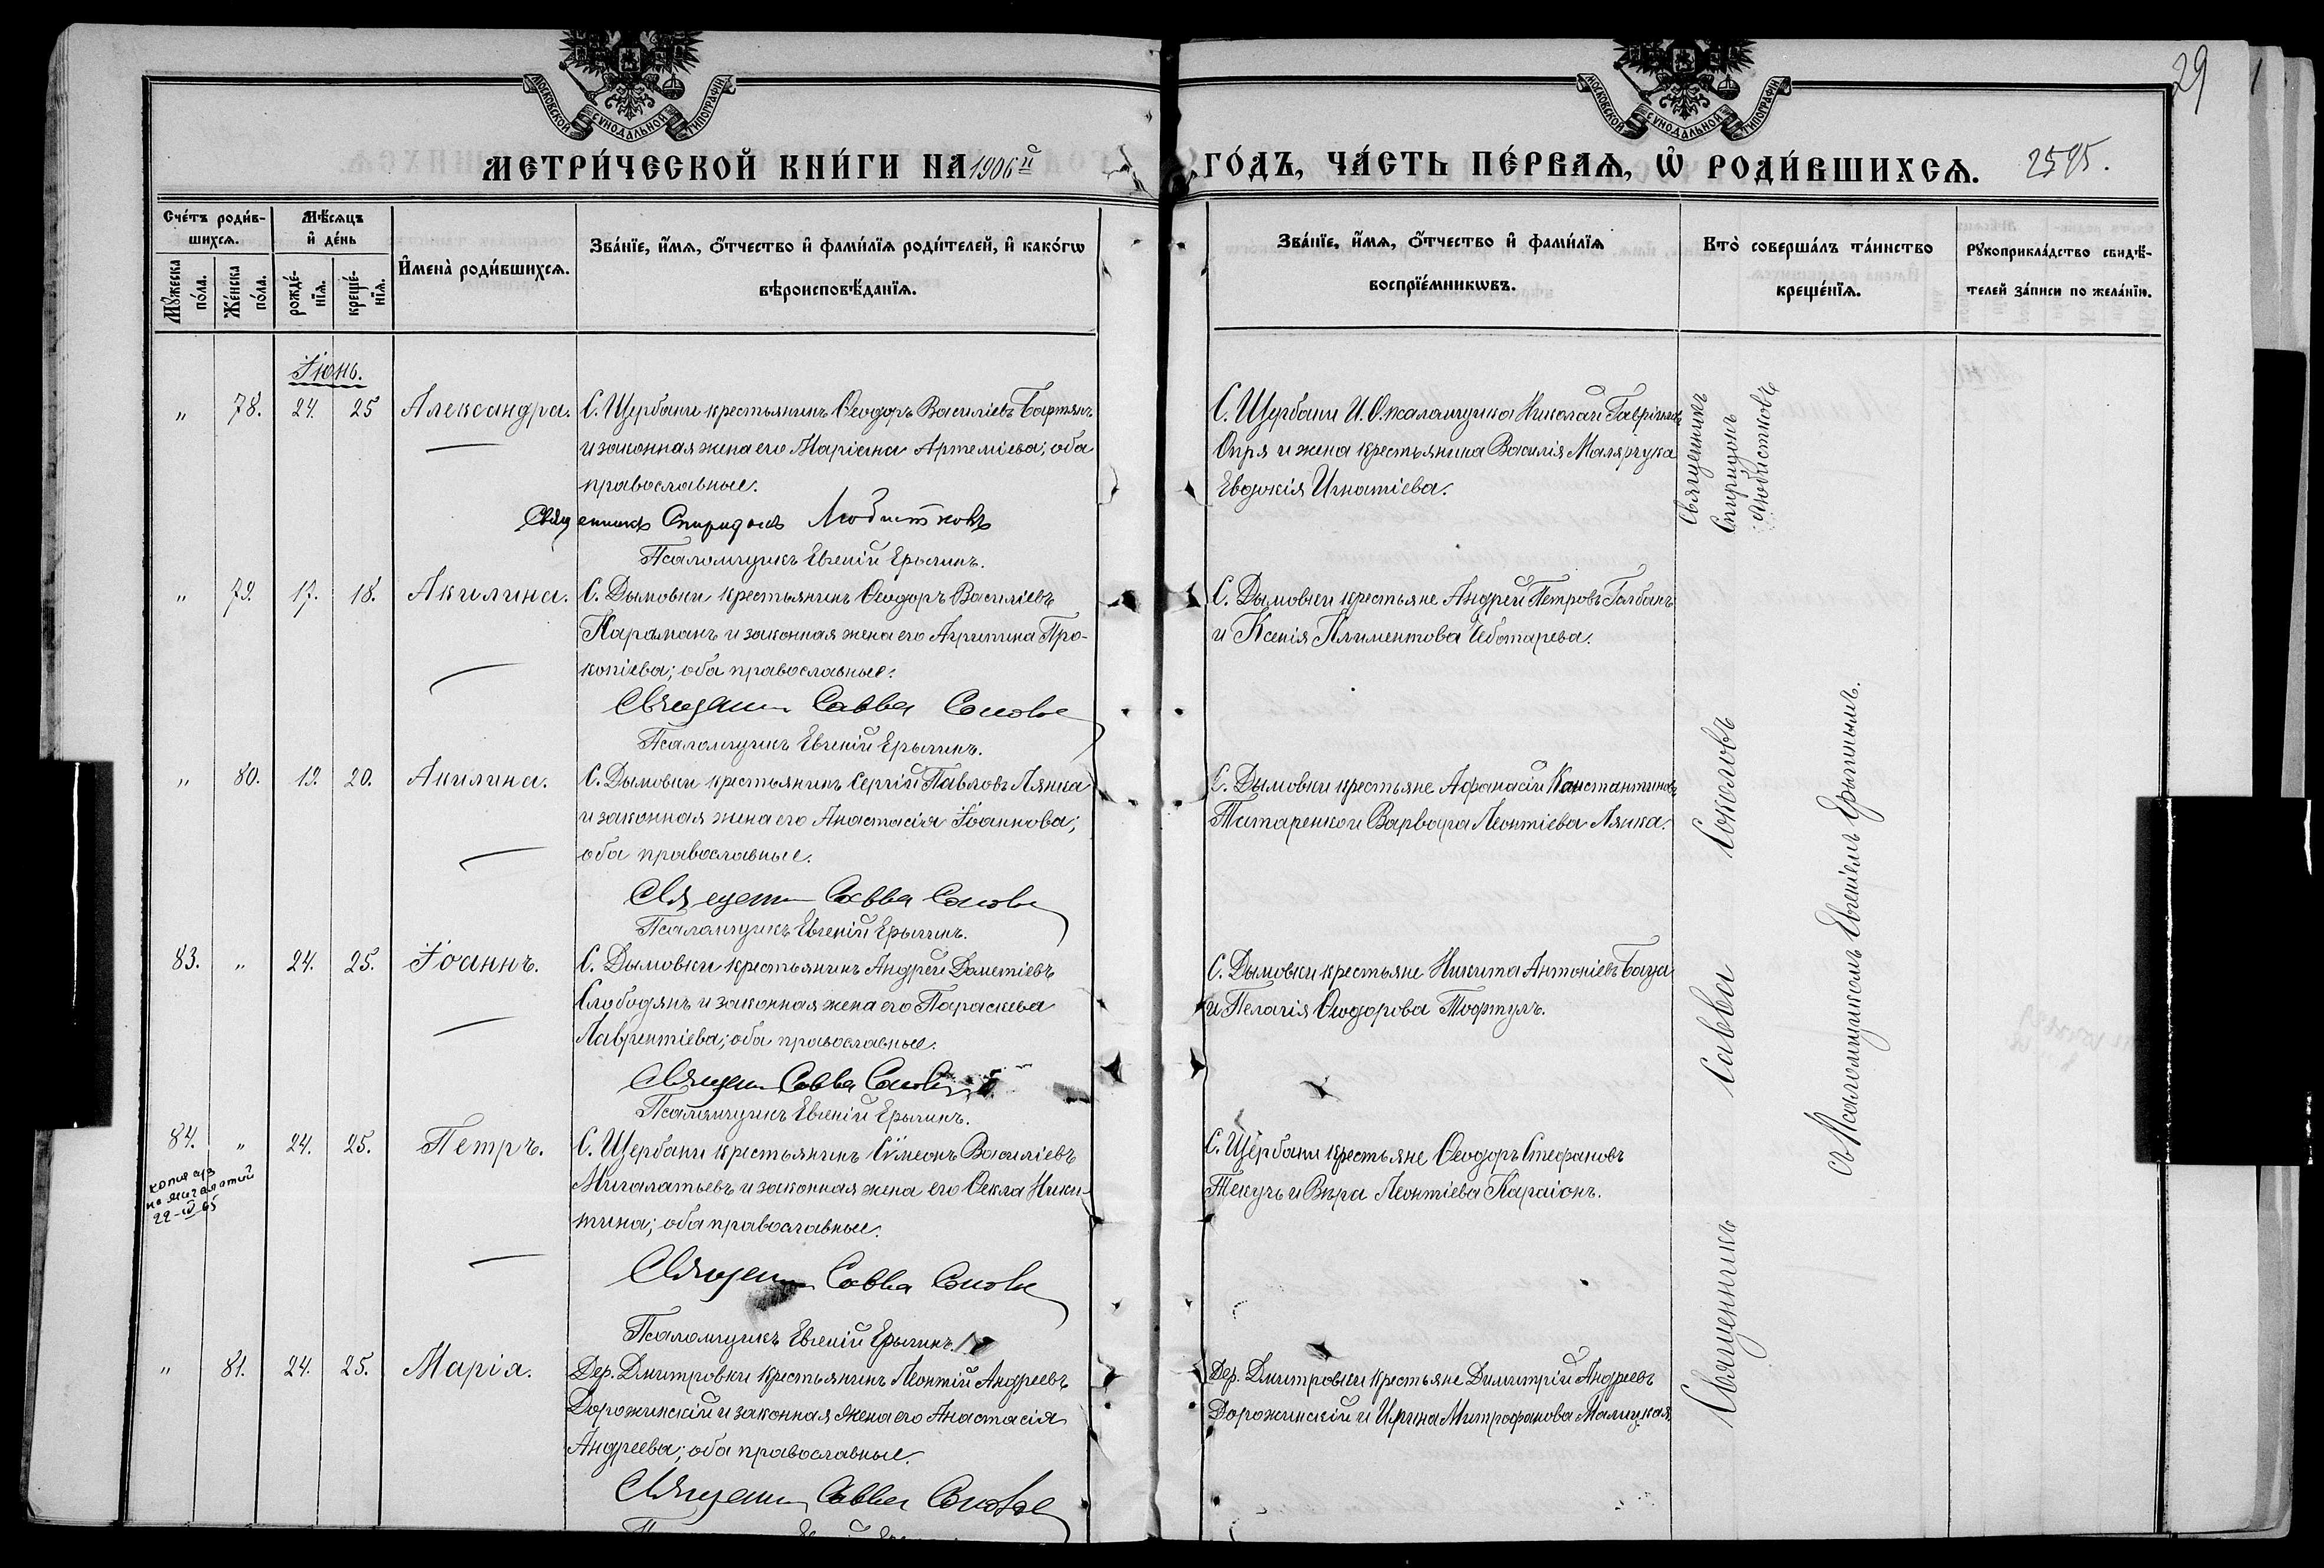 29
МОСКОВСКОЙ СѴНОДАЛЬНОЙ ТИПОГРАФІИ
МОСКОВСКОЙ СѴНОДАЛЬНОЙ ТИПОГРАФІИ
МЕТРИ́ЧЕСКОЙ КНИ́ГИ НА 1906й ГО́ДЪ, ЧА́СТЬ ПЕ́РВАѦ, Ѽ РОДИ́ВШИХСѦ. 2595.
Сче́тъ роди́в-
шихсѧ.
Мѣ́сѧцъ
и҆ де́нь
Мꙋ́жеска
по́ла.
Же́нска
по́ла.
рожде́-
нїѧ.
креще́-
нїѧ.
И҆мена̀ роди́вшихсѧ.
Зва́нїе, и҆́мѧ, ѻ҆́тчество и҆ фами́лїѧ роди́телей, и҆ како́гѡ
вѣроисповѣ́данїѧ.
Зва́нїе, и҆́мѧ, ѻ҆́тчество и҆ фами́лїѧ
воспрїе́мникѡвъ.
Кто̀ соверша́лъ та́инство
креще́нїѧ.
Рꙋкоприкла́дство свидѣ́-
телей за́писи по жела́нїю.
Іюнь.
„ 78. 24. 25 Александра. С. Щербани крестьянинъ Ѳеодоръ Василіевъ Бартянъ
и законная жена его Маріана Артеміева; оба
православные.
Священникъ Спиридонъ Любистковъ
Псаломщикъ Евгеній Ерылинъ.
С. Щербани И. О. псаломщика Николай Гавріиловъ
Опря и жена крестьянина Василія Малярчука
Евдокія Игнатіева.
Священникъ
Спиридонъ
Любистковъ
„ 79. 17. 18. Акилина. С. Дымовки крестьянинъ Ѳеодоръ Василіевъ
Караманъ и законная жена его Агрипина Про-
копіева; оба православные.
Священ Савва Соколов
Псаломщикъ Евгеній Ерылинъ.
С. Дымовки крестьяне Андрей Петровъ Галбанъ
и Ксенія Климентова Чеботарева.
„ 80. 19. 20. Акилина. С. Дымовки крестьянинъ Сергій Павловъ Лянка
и законная жена его Анастасія Іоаннова;
оба православные.
Священ Савва Соколов
Псаломщикъ Евгеній Ерылинъ.
С. Дымовки крестьяне Афанасій Константиновъ
Титаренко и Варвара Леонтіева Лянка.
83. „ 24. 25. Іоаннъ. С. Дымовки крестьянинъ Андрей Дометіевъ
Слободянъ и законная жена его Параскева
Лаврентіева; оба православные.
Священ Савва Соколов
Псаломщикъ Евгеній Ерылинъ.
С. Дымовки крестьяне Никита Антоніевъ Бачу
и Пелагія Ѳеодорова Тофтулъ.
84. „ 24. 25. Петръ. С. Щербани крестьянинъ Сѵмеонъ Василіевъ
Мигалатьевъ и законная жена его Ѳекла Ники-
тина; оба православные.
Священ Савва Соколов
Псаломщикъ Евгеній Ерылинъ.
22-IV 65
С. Щербани крестьяне Ѳеодоръ Стефановъ
Текучъ и Вѣра Леонтіева Караіонъ.
„ 81. 24. 25. Марія. Дер. Дмитровки крестьянинъ Леонтій Андреевъ
Дорожинскій и законная жена его Анастасія
Андреева; оба православные.
Священ Савва Соколов
Дер. Дмитровки крестьяне Димитрій Андреевъ
Дорожинскій и Ирина Митрофанова Малицкая.
Священникъ Савва Соколовъ
съ Псаломщикомъ Евгеніемъ Ерылинымъ.